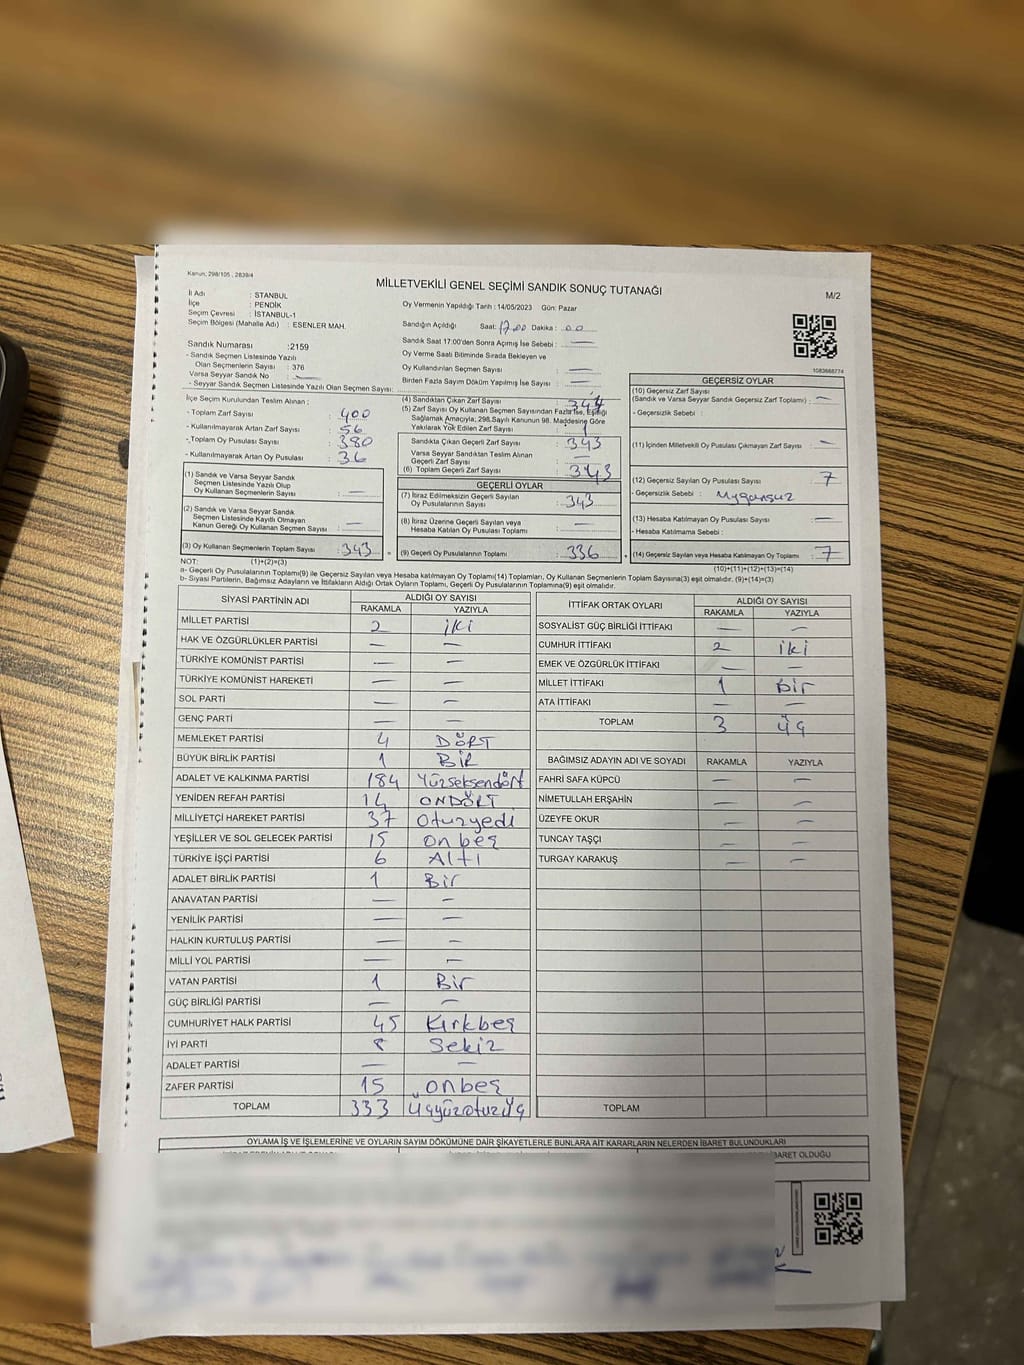 Kanun; 298/105 , 2839/4
MİLLETVEKİLİ GENEL SEÇİMİ SANDIK SONUÇ TUTANAĞI
M/2
İl Adı : STANBUL
İlçe : PENDİK
Seçim Çevresi : İSTANBUL-1
Seçim Bölgesi (Mahalle Adı) : ESENLER MAH.
Oy Vermenin Yapıldığı Tarih : 14/05/2023 Gün: Pazar
Sandığın Açıldığı Saat: 17.00 Dakika : 00
Sandık Saat 17:00'den Sonra Açımış İse Sebebi : —
Oy Verme Saati Bitiminde Sırada Bekleyen ve
Oy Kullandırılan Seçmen Sayısı : —
Birden Fazla Sayım Döküm Yapılmış İse Sayısı : —
Sandık Numarası :2159
- Sandık Seçmen Listesinde Yazılı
Olan Seçmenlerin Sayısı : 376
Varsa Seyyar Sandık No : —
- Seyyar Sandık Seçmen Listesinde Yazılı Olan Seçmen Sayısı:
1083668774
İlçe Seçim Kurulundan Teslim Alınan ;
- Toplam Zarf Sayısı : 400
- Kullanılmayarak Artan Zarf Sayısı : 56
- Toplam Oy Pusulası Sayısı : 380
- Kullanılmayarak Artan Oy Pusulası : 36
(1) Sandık ve Varsa Seyyar Sandık
Seçmen Listesinde Yazılı Olup
Oy Kullanan Seçmenlerin Sayısı : —
(2) Sandık ve Varsa Seyyar Sandık
Seçmen Listesinde Kayıtlı Olmayan
Kanun Gereği Oy Kullanan Seçmen Sayısı : —
(3) Oy Kullanan Seçmenlerin Toplam Sayısı : 343
(1)+(2)=(3)
(4) Sandıktan Çıkan Zarf Sayısı : 344
(5) Zarf Sayısı Oy Kullanan Seçmen Sayısından Fazla İse, Eşitliği
Sağlamak Amacıyla; 298 Sayılı Kanunun 98. Maddesine Göre
Yakılarak Yok Edilen Zarf Sayısı : 1
Sandıkta Çıkan Geçerli Zarf Sayısı : 343
Varsa Seyyar Sandıktan Teslim Alınan
Geçerli Zarf Sayısı : —
(6) Toplam Geçerli Zarf Sayısı : 343
GEÇERLİ OYLAR
(7) İtiraz Edilmeksizin Geçerli Sayılan
Oy Pusulalarının Sayısı : 343
(8) İtiraz Üzerine Geçerli Sayılan veya
Hesaba Katılan Oy Pusulası Toplamı : —
(9) Geçerli Oy Pusulalarının Toplamı : 336
GEÇERSİZ OYLAR
(10) Geçersiz Zarf Sayısı
(Sandık ve Varsa Seyyar Sandık Geçersiz Zarf Toplamı) : —
- Geçersizlik Sebebi :
(11) İçinden Milletvekili Oy Pusulası Çıkmayan Zarf Sayısı : —
(12) Geçersiz Sayılan Oy Pusulası Sayısı : 7
- Geçersizlik Sebebi : Uygunsuz
(13) Hesaba Katılmayan Oy Pusulası Sayısı : —
- Hesaba Katılmama Sebebi :
(14) Geçersiz Sayılan veya Hesaba Katılmayan Oy Toplamı : 7
(10)+(11)+(12)+(13)=(14)
NOT:
a- Geçerli Oy Pusulalarının Toplamı(9) ile Geçersiz Sayılan veya Hesaba katılmayan Oy Toplamı(14) Toplamları, Oy Kullanan Seçmenlerin Toplam Sayısına(3) eşit olmalıdır. (9)+(14)=(3)
b- Siyasi Partilerin, Bağımsız Adayların ve İttifakların Aldığı Ortak Oyların Toplamı, Geçerli Oy Pusulalarının Toplamına(9) eşit olmalıdır.
SİYASİ PARTİNİN ADI ALDIĞI OY SAYISI
RAKAMLA YAZIYLA
MİLLET PARTİSİ 2 iki
HAK VE ÖZGÜRLÜKLER PARTİSİ — —
TÜRKİYE KOMÜNİST PARTİSİ — —
TÜRKİYE KOMÜNİST HAREKETİ — —
SOL PARTİ — —
GENÇ PARTİ — —
MEMLEKET PARTİSİ 4 DÖRT
BÜYÜK BİRLİK PARTİSİ 1 BİR
ADALET VE KALKINMA PARTİSİ 184 Yüzseksendört
YENİDEN REFAH PARTİSİ 14 ONDÖRT
MİLLİYETÇİ HAREKET PARTİSİ 37 Otuzyedi
YEŞİLLER VE SOL GELECEK PARTİSİ 15 onbeş
TÜRKİYE İŞÇİ PARTİSİ 6 Altı
ADALET BİRLİK PARTİSİ 1 Bir
ANAVATAN PARTİSİ — —
YENİLİK PARTİSİ — —
HALKIN KURTULUŞ PARTİSİ — —
MİLLİ YOL PARTİSİ — —
VATAN PARTİSİ 1 Bir
GÜÇ BİRLİĞİ PARTİSİ — —
CUMHURİYET HALK PARTİSİ 45 Kırkbeş
İYİ PARTİ 8 Sekiz
ADALET PARTİSİ — —
ZAFER PARTİSİ 15 onbeş
TOPLAM 333 üçyüzotuzüç
İTTİFAK ORTAK OYLARI ALDIĞI OY SAYISI
RAKAMLA YAZIYLA
SOSYALİST GÜÇ BİRLİĞİ İTTİFAKI — —
CUMHUR İTTİFAKI 2 iki
EMEK VE ÖZGÜRLÜK İTTİFAKI — —
MİLLET İTTİFAKI 1 Bir
ATA İTTİFAKI — —
TOPLAM 3 üç
BAĞIMSIZ ADAYIN ADI VE SOYADI RAKAMLA YAZIYLA
FAHRİ SAFA KÜPCÜ — —
NİMETULLAH ERŞAHİN — —
ÜZEYFE OKUR — —
TUNCAY TAŞÇI — —
TURGAY KARAKUŞ — —
TOPLAM
OYLAMA İŞ VE İŞLEMLERİNE VE OYLARIN SAYIM DÖKÜMÜNE DAİR ŞİKAYETLERLE BUNLARA AİT KARARLARIN NELERDEN İBARET BULUNDUKLARI
BARET OLDUĞU